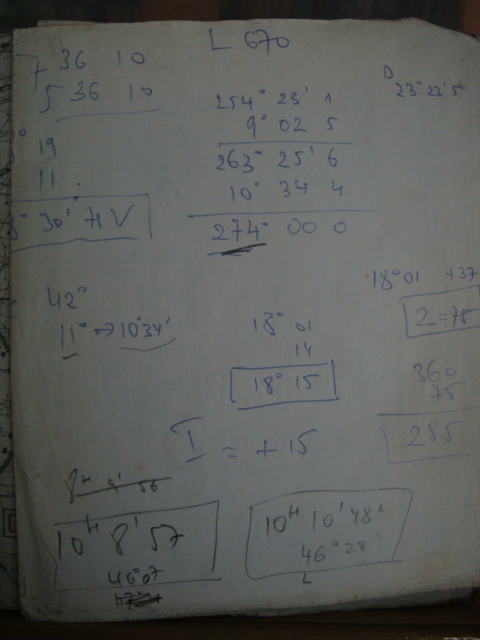 L 670
7 36 10
5 36 10
19
11
30' 71 V
254° 23' 1
9° 02 5
263° 25' 6
10° 34 4
274° 00 0
D
23° 23' 5
42°
11° → 10°34'
18° 01
14
18° 15
18° 01 +37
Z = 75
360
75
285
I = + 15
10H 8' 57
46° 07
10H 10' 48"
46° 28'
L